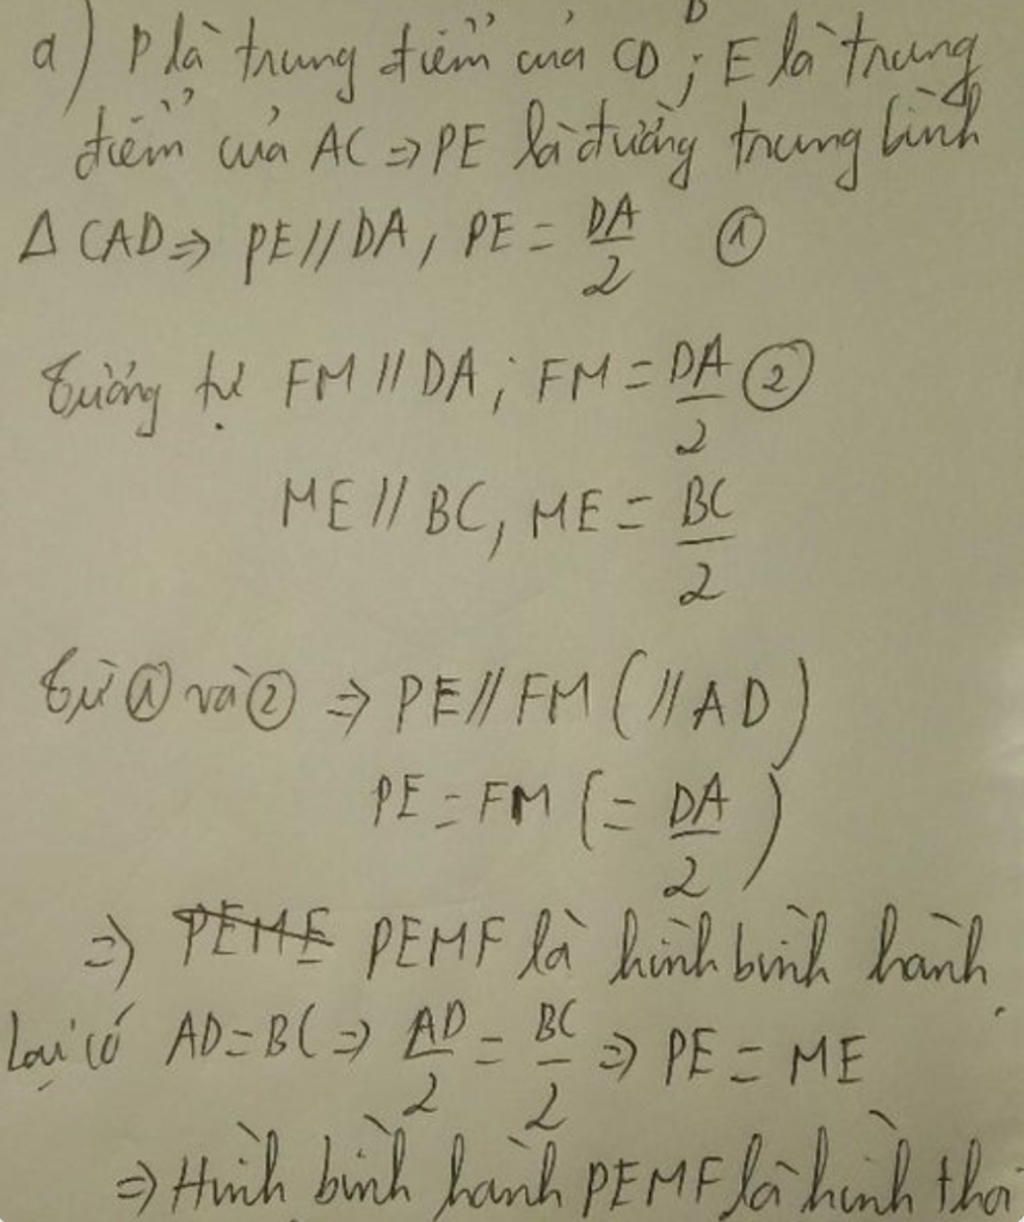 a) P là trung điểm của CD; E là trung
điểm của AC => PE là đường trung bình
Δ CAD => PE // DA, PE = DA/2 ①
Tương tự FM // DA; FM = DA/2 ②
ME // BC, ME = BC/2
Từ ① và ② => PE // FM (// AD)
PE = FM (= DA/2)
=> PEMF là hình bình hành.
Lại có AD = BC => AD/2 = BC/2 => PE = ME
=> Hình bình hành PEMF là hình thoi